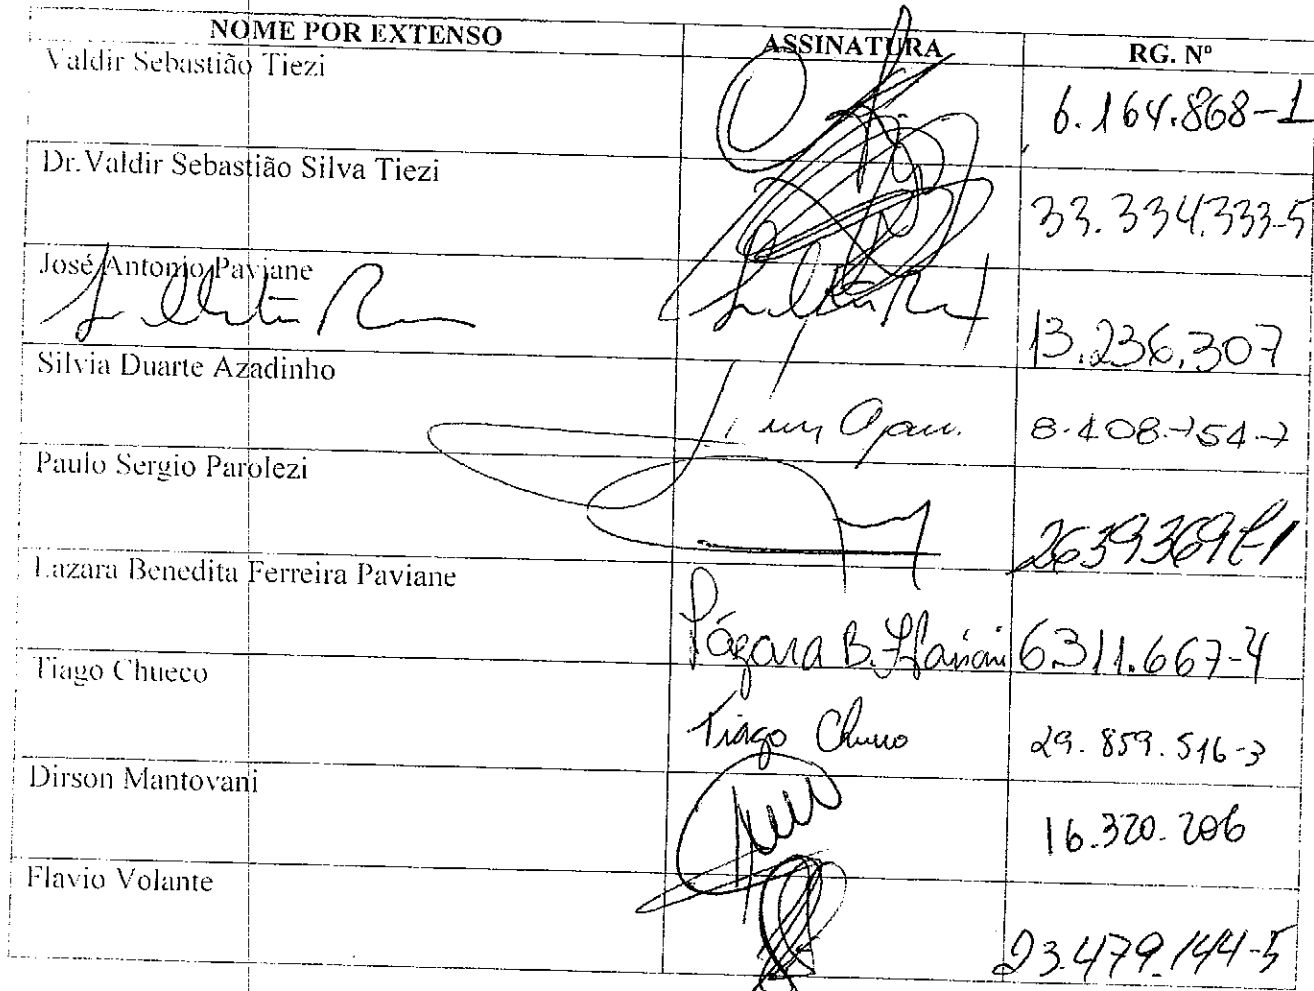 NOME POR EXTENSO ASSINATURA RG. Nº
Valdir Sebastião Tiezi 6.164.868-1
Dr.Valdir Sebastião Silva Tiezi 33.334.333-5
José Antonio Paviane 13.236.307
Silvia Duarte Azadinho 8.408.754-7
Paulo Sergio Parolezi
Lazara Benedita Ferreira Paviane Lázara B. 6.311.667-4
Tiago Chueco Tiago Chueco 29.859.516-3
Dirson Mantovani 16.320.206
Flavio Volante 23.479.144-5